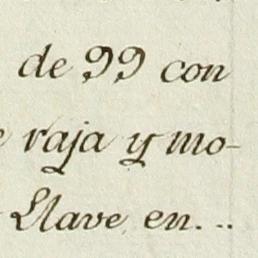 de 99 con
e raja y mo-
Llave en. ..